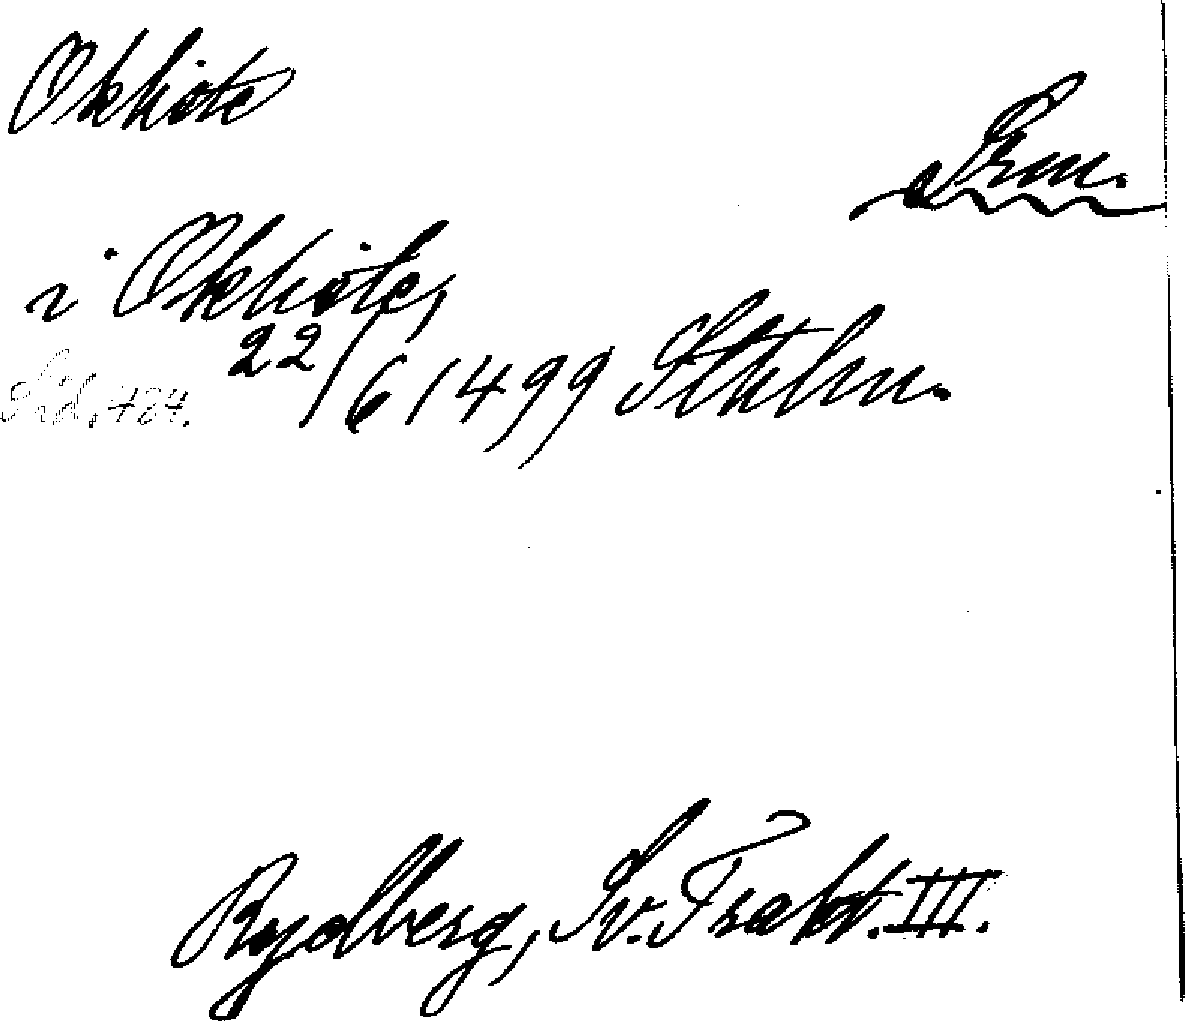 Okhiote
Srm.
i Okhiote,
22/6 1499 Sthlm.
Sid. 484.
Rydberg, Sv. Trakt. III.